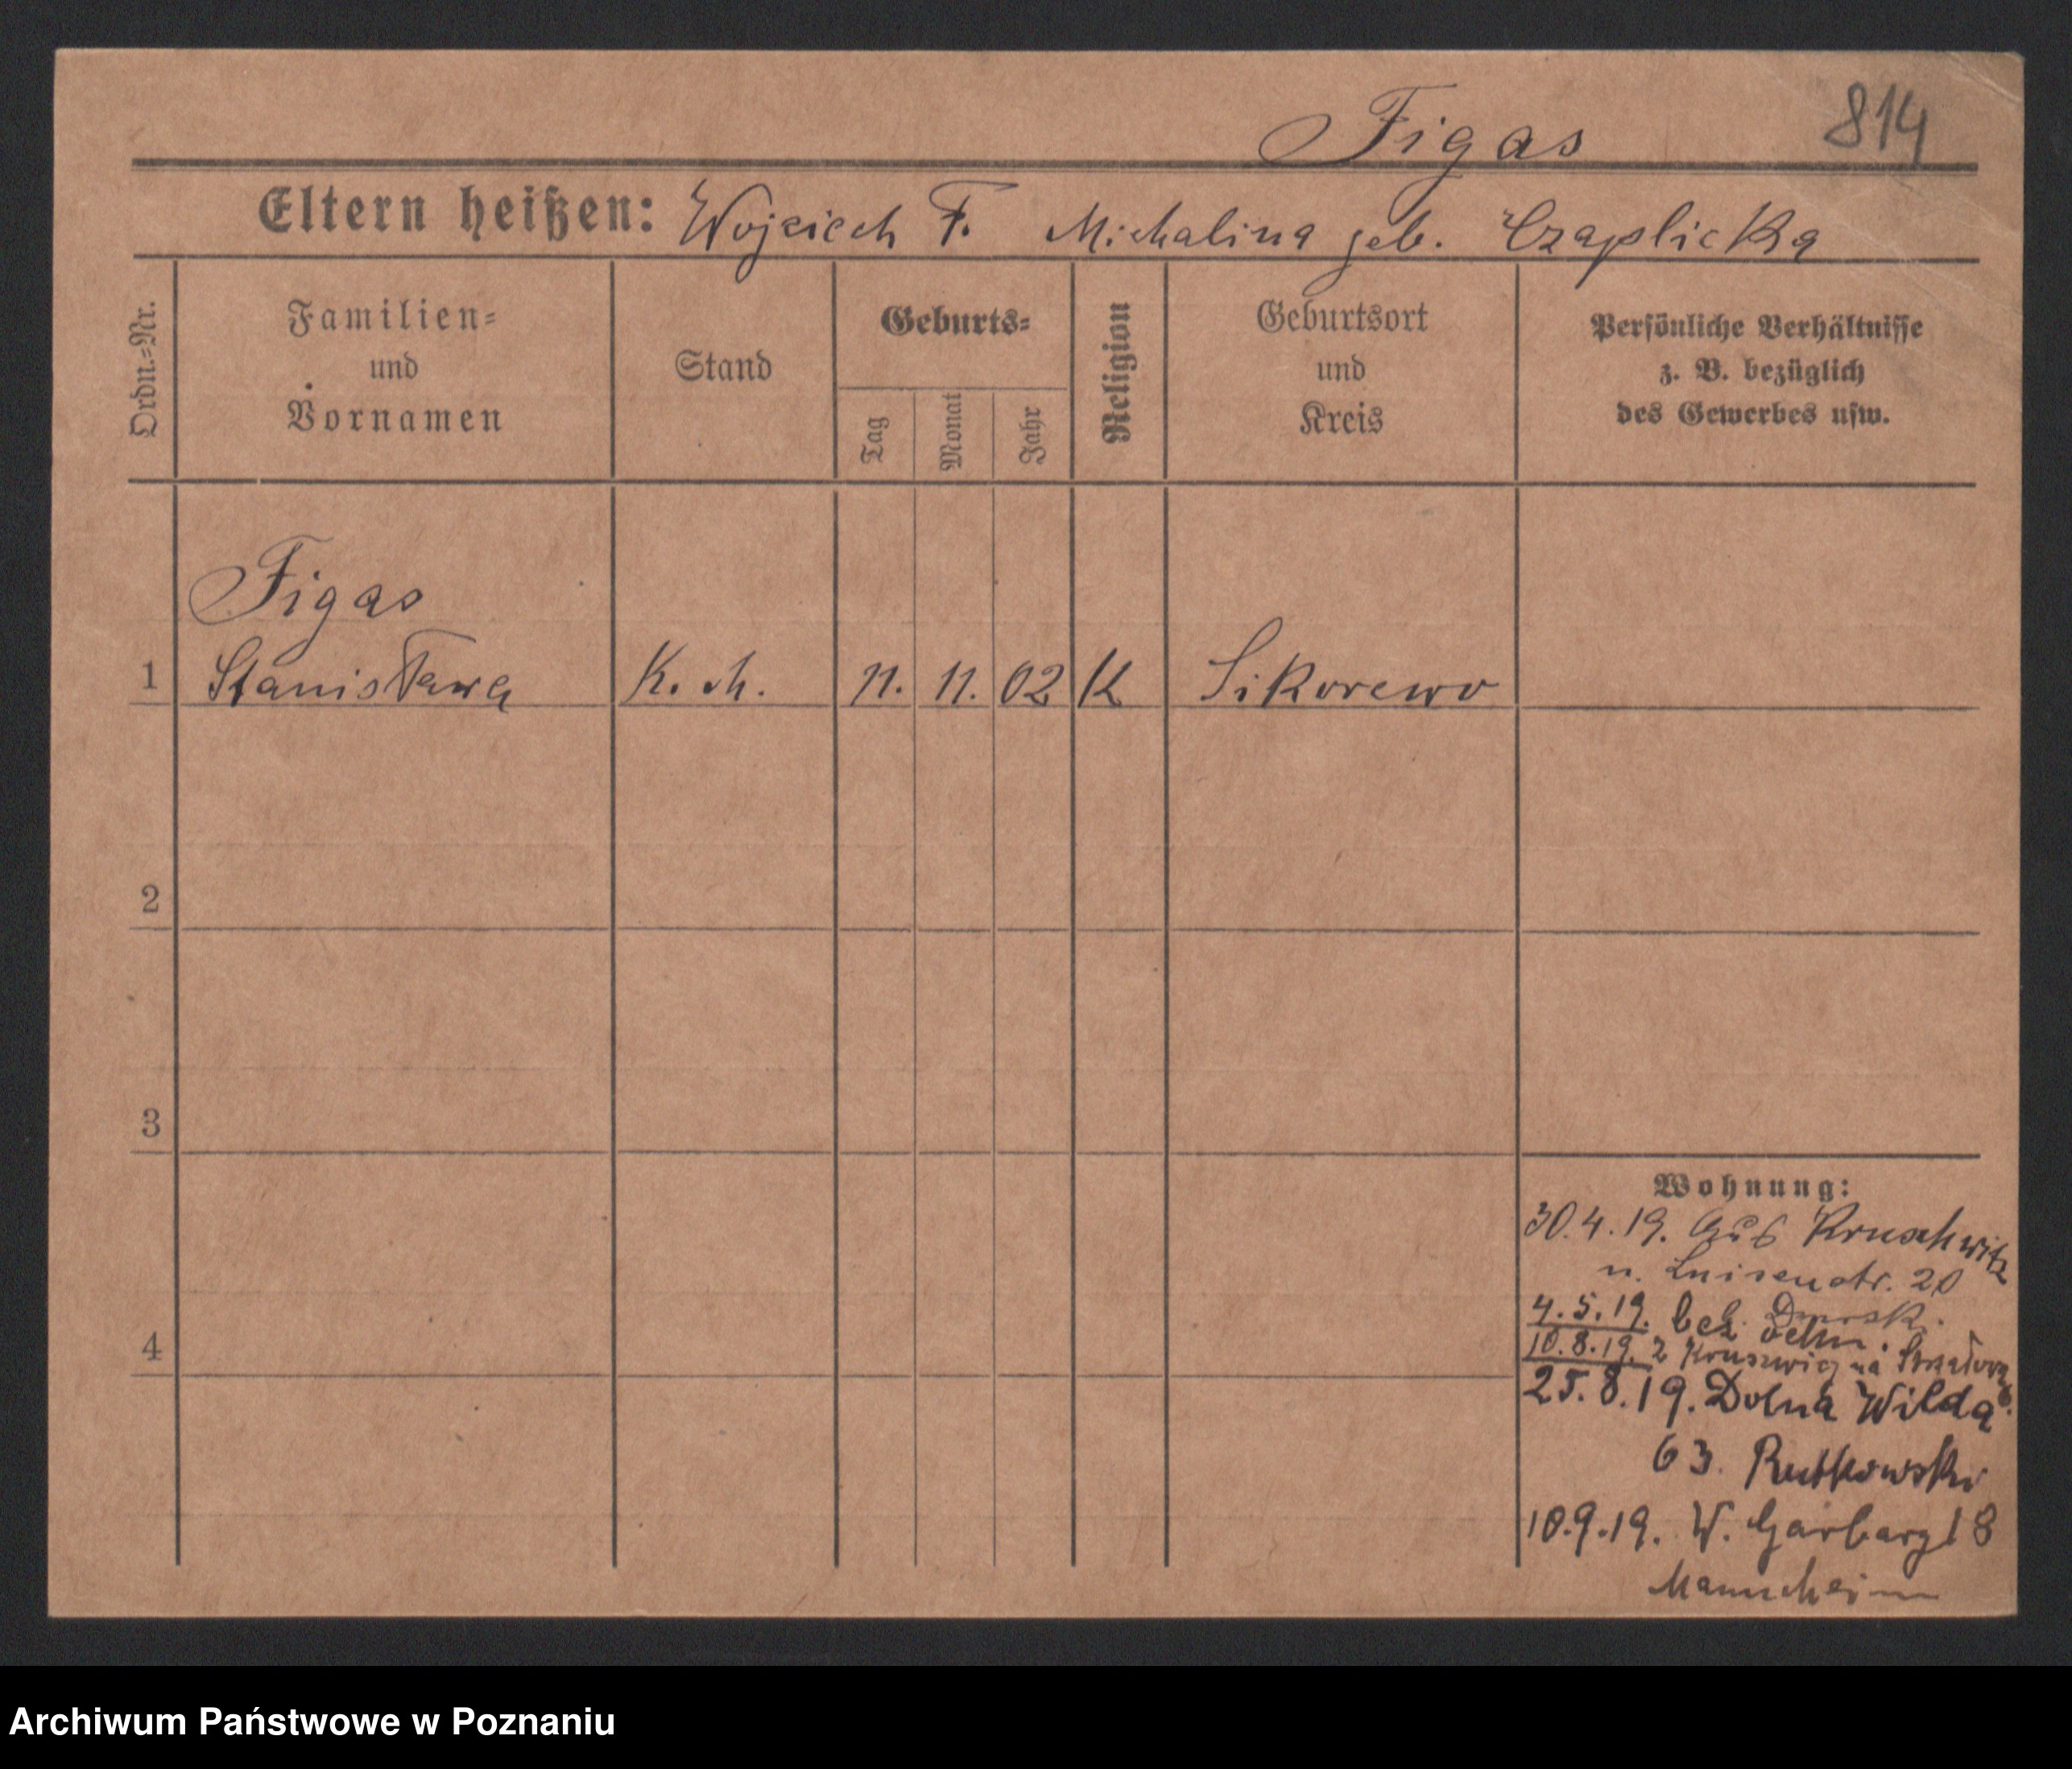 Figas
814
Eltern heißen: Wojciech F. Michalina geb. Czaplicka
Ordn.=Nr.
Familien=
und
Vornamen
Stand
Geburts=
Tag
Monat
Jahr
Religion
Geburtsort
und
Kreis
Persönliche Verhältnisse
z. B. bezüglich
des Gewerbes usw.
Figas
1 Stanisława K. ch. 11. 11. 02 K Sikorewo
2
3
4
Wohnung:
30.4.19. aus Kruschwitz
n. Luisenstr. 20
4.5.19.
10.8.19. z Kruszwicy na
25.8.19. Dolna Wilda
63. Rutkowski
10.9.19. W. Garbary 18
Mannheim
Archiwum Państwowe w Poznaniu